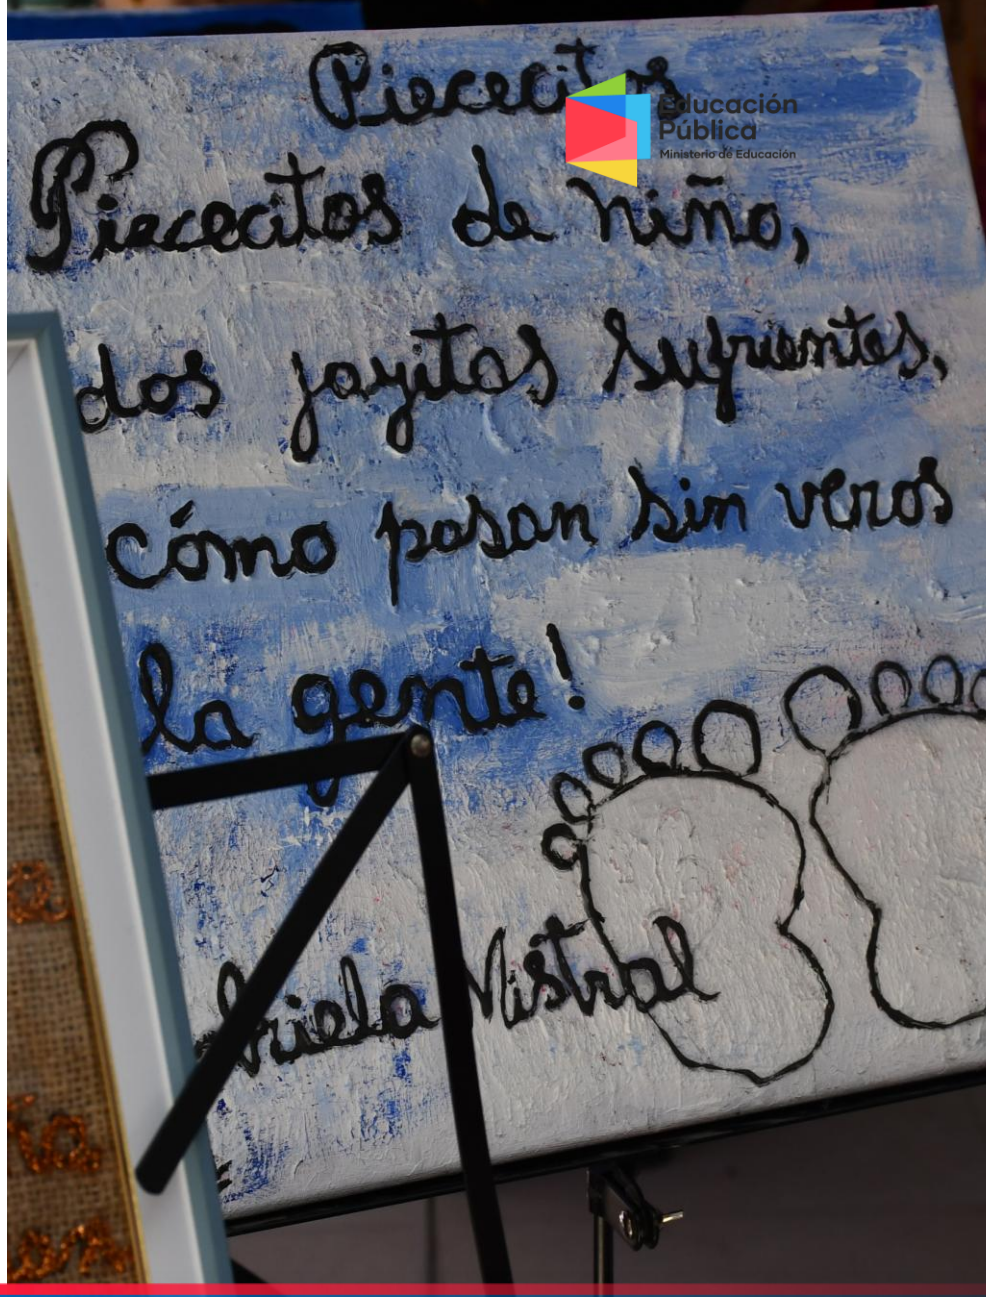 Piececitos
Educación
Pública
Ministerio de Educación
Piececitos de niño,
dos joyitas sufrientes,
cómo pasan sin veros
la gente!
briela Mistral